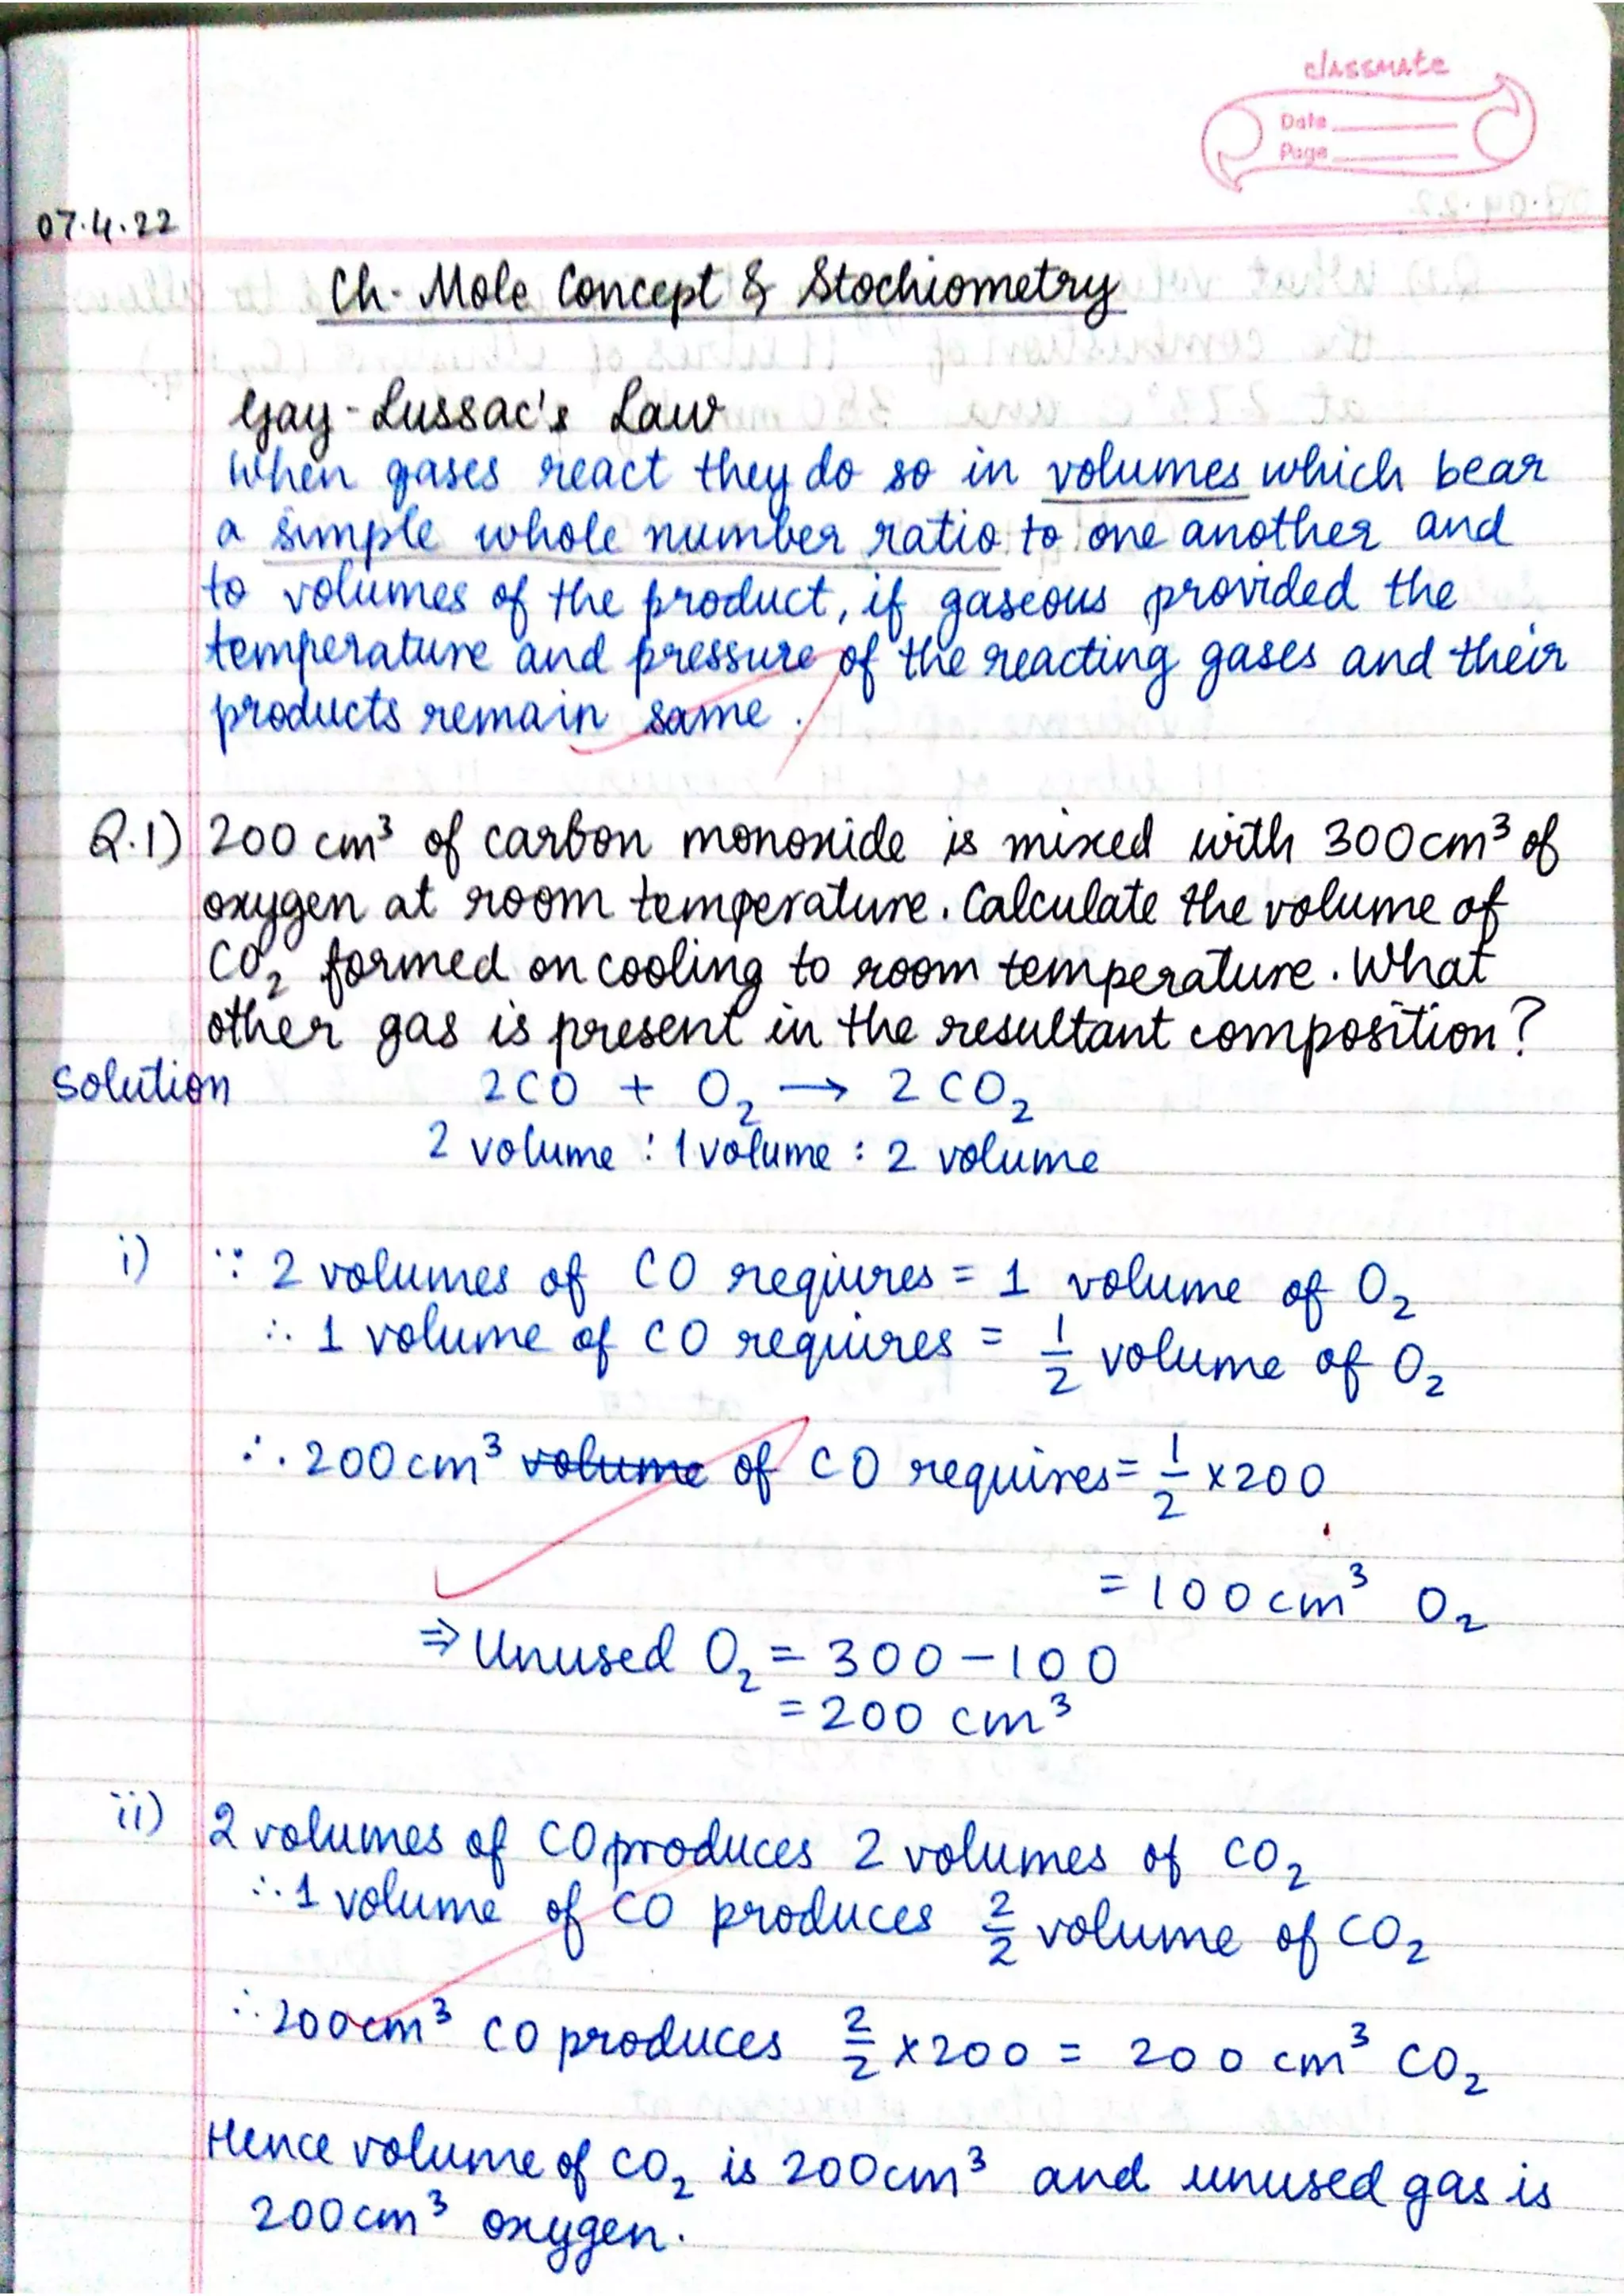 classmate
Date
Page
07.4.22
Ch- Mole Concept & Stochiometry
Gay-Lussac's Law
When gases react they do so in volumes which bear
a simple whole number ratio to one another and
to volumes of the product, if gaseous provided the
temperature and pressure of the reacting gases and their
products remain same.
Q.1) 200 cm³ of carbon monoxide is mixed with 300cm³ of
oxygen at room temperature. Calculate the volume of
CO₂ formed on cooling to room temperature. What
other gas is present in the resultant composition?
Solution 2CO + O₂ → 2CO₂
2 volume : 1 volume : 2 volume
i) ∵ 2 volumes of CO requires = 1 volume of O₂
∴ 1 volume of CO requires = 1/2 volume of O₂
∴ 200cm³ volume of CO requires = 1/2 x 200
= 100cm³ O₂
⇒ Unused O₂ = 300 - 100
= 200 cm³
ii) 2 volumes of CO produces 2 volumes of CO₂
∴ 1 volume of CO produces 2/2 volume of CO₂
∴ 200cm³ CO produces 2/2 x 200 = 200 cm³ CO₂
Hence volume of CO₂ is 200cm³ and unused gas is
200cm³ oxygen.